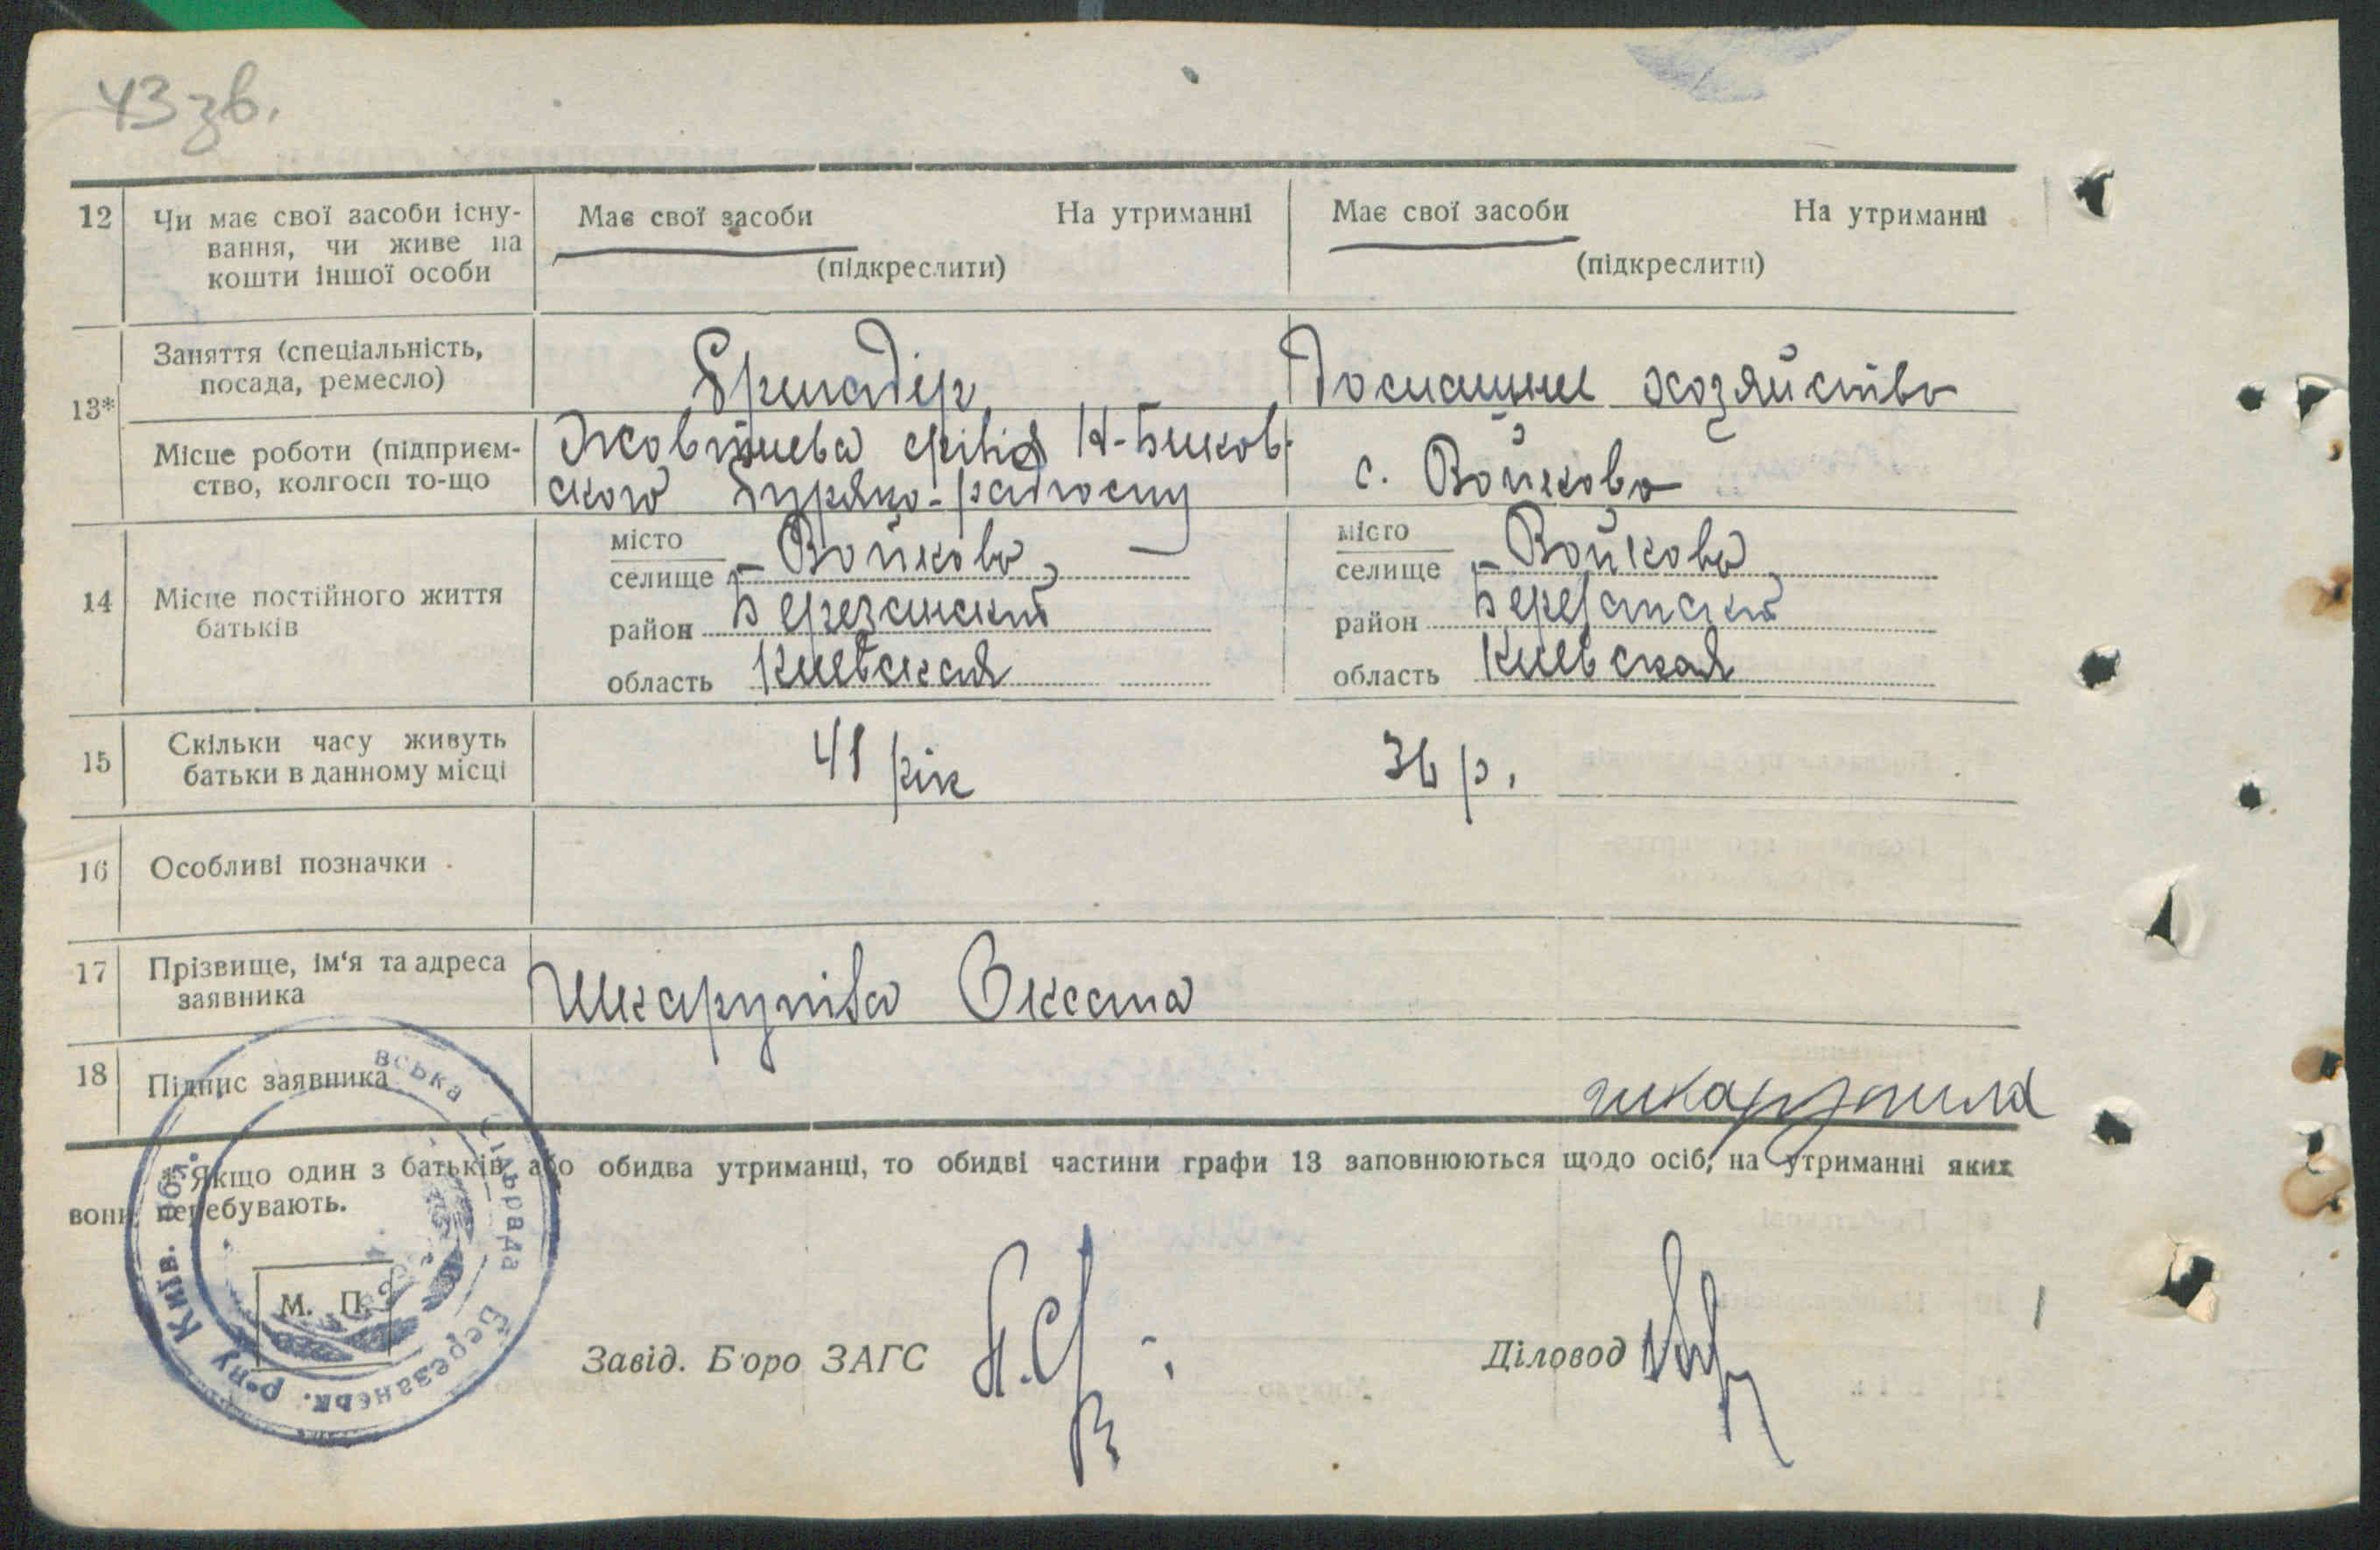 43 зв.
12 Чи має свої засоби існу- Має свої засоби На утриманні Має свої засоби На утриманні
вання, чи живе на
кошти іншої особи (підкреслити) (підкреслити)
13* Заняття (спеціальність, Бригадір Домашнє хозяйство
посада, ремесло)
Місце роботи (підприєм- Жовтнева філія Н-Биков- с. Войково
ство, колгосп то-що ского Буряко-радгоспу
14 Місце постійного життя місто Войково місто Войково
батьків селище селище
район Березанский район Березанский
область Киевская область Киевская
15 Скільки часу живуть 41 рік 36 р.
батьки в данному місці
16 Особливі позначки
17 Прізвище, ім'я та адреса Шкарупіла Оксана
заявника
18 Підпис заявника шкарупила
* Якщо один з батьків, або обидва утриманці, то обидві частини графи 13 заповнюються щодо осіб, на утриманні яких
вони перебувають.
М. П.
Завід. Б'юро ЗАГС Діловод
вська Сільрада Березанськ. р-ну Київ. обл.